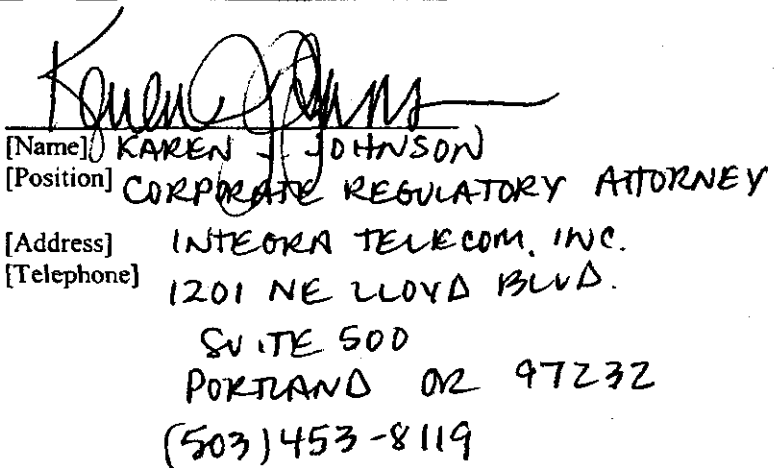 Karen J Johnson
[Name] KAREN J. JOHNSON
[Position] CORPORATE REGULATORY ATTORNEY
[Address] INTEGRA TELECOM, INC.
[Telephone] 1201 NE LLOYD BLVD.
SUITE 500
PORTLAND OR 97232
(503) 453-8119